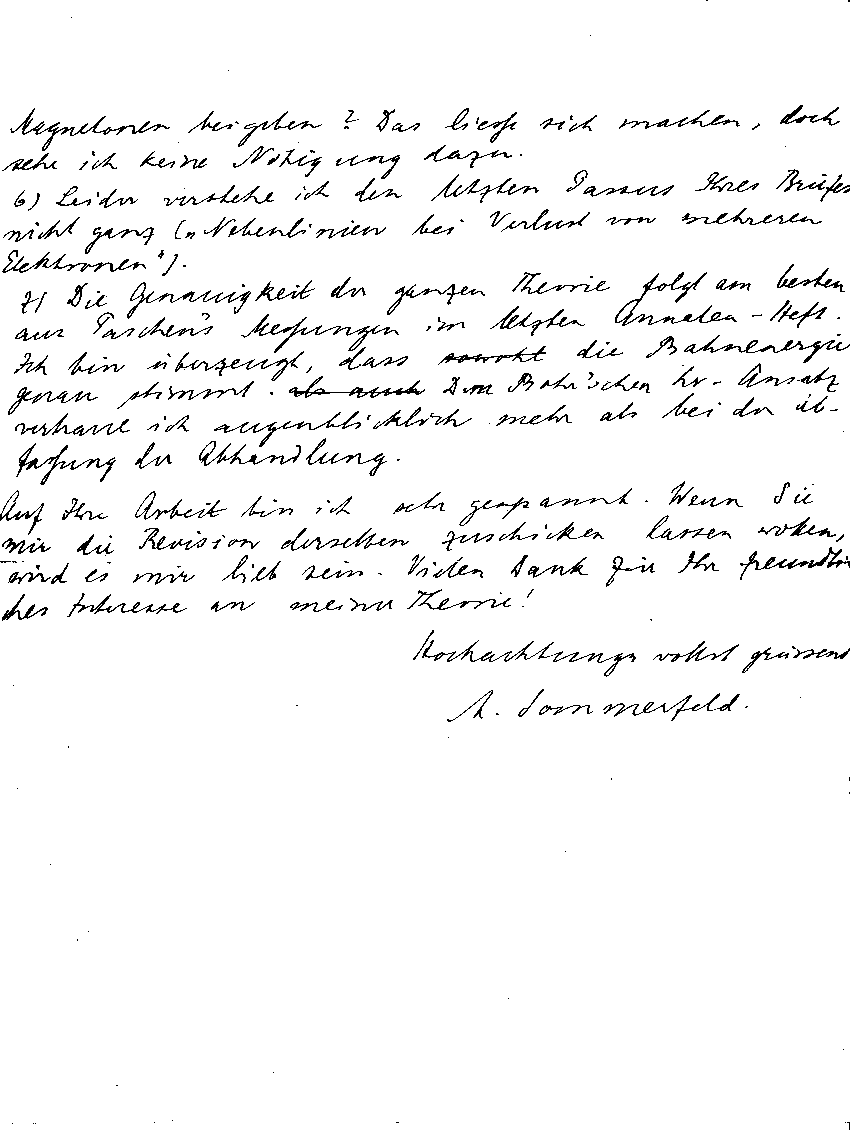 Magnetonen beigeben? Das liesse sich machen, doch
sehe ich keine Nötigung dazu.
6) Leider verstehe ich den letzten Passus Ihres Briefes
nicht ganz („Nebenlinien bei Verlust von mehreren
Elektronen").
7) Die Genauigkeit der ganzen Theorie folgt am besten
aus Paschen's Messungen im letzten Annalen-Heft.
Ich bin überzeugt, dass sowohl die Bahnenergie
genau stimmt. als auch Dem Bohr'schen hν-Ansatz
vertraue ich augenblicklich mehr als bei der Ab-
fassung der Abhandlung.
Auf Ihre Arbeit bin ich sehr gespannt. Wenn Sie
mir die Revision derselben zuschicken lassen wollen,
wird es mir lieb sein. Vielen Dank für Ihr freundli
ches Interesse an meiner Theorie!
Hochachtungsvollst grüssend
A. Sommerfeld.